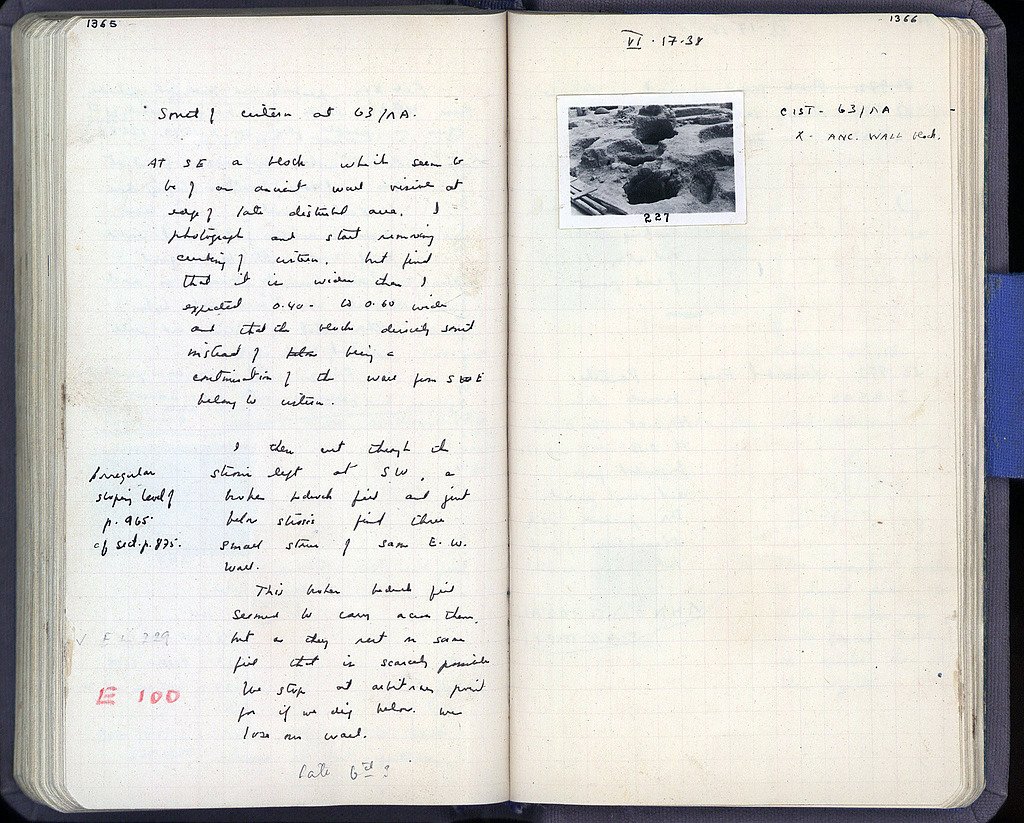 1365
South of cistern at 63/ΛΑ.
At SE a block which seems to
be of an ancient wall visible at
edge of late disturbed area. I
photograph and start removing
curbing of cistern. but find
that it is wider than I
expected 0.40 - to 0.60 wide
and that the block directly south
instead of being a
continuation of the wall from SE
belongs to cistern.
I then cut through the
strosis left at SW, a
broken bedrock fill and just
below strosis find three
small stones of same E.W.
wall.
Irregular
sloping level of
p. 965.
cf sect. p. 875.
This broken bedrock fill
seemed to carry across them,
but as they rest on same
fill that is scarcely possible
We stop at arbitrary point
for if we dig below. we
lose our wall.
E 100
late 6th ?
1366
VI · 17 · 38
227
CIST - 63/ΛΑ
X - ANC. WALL block.